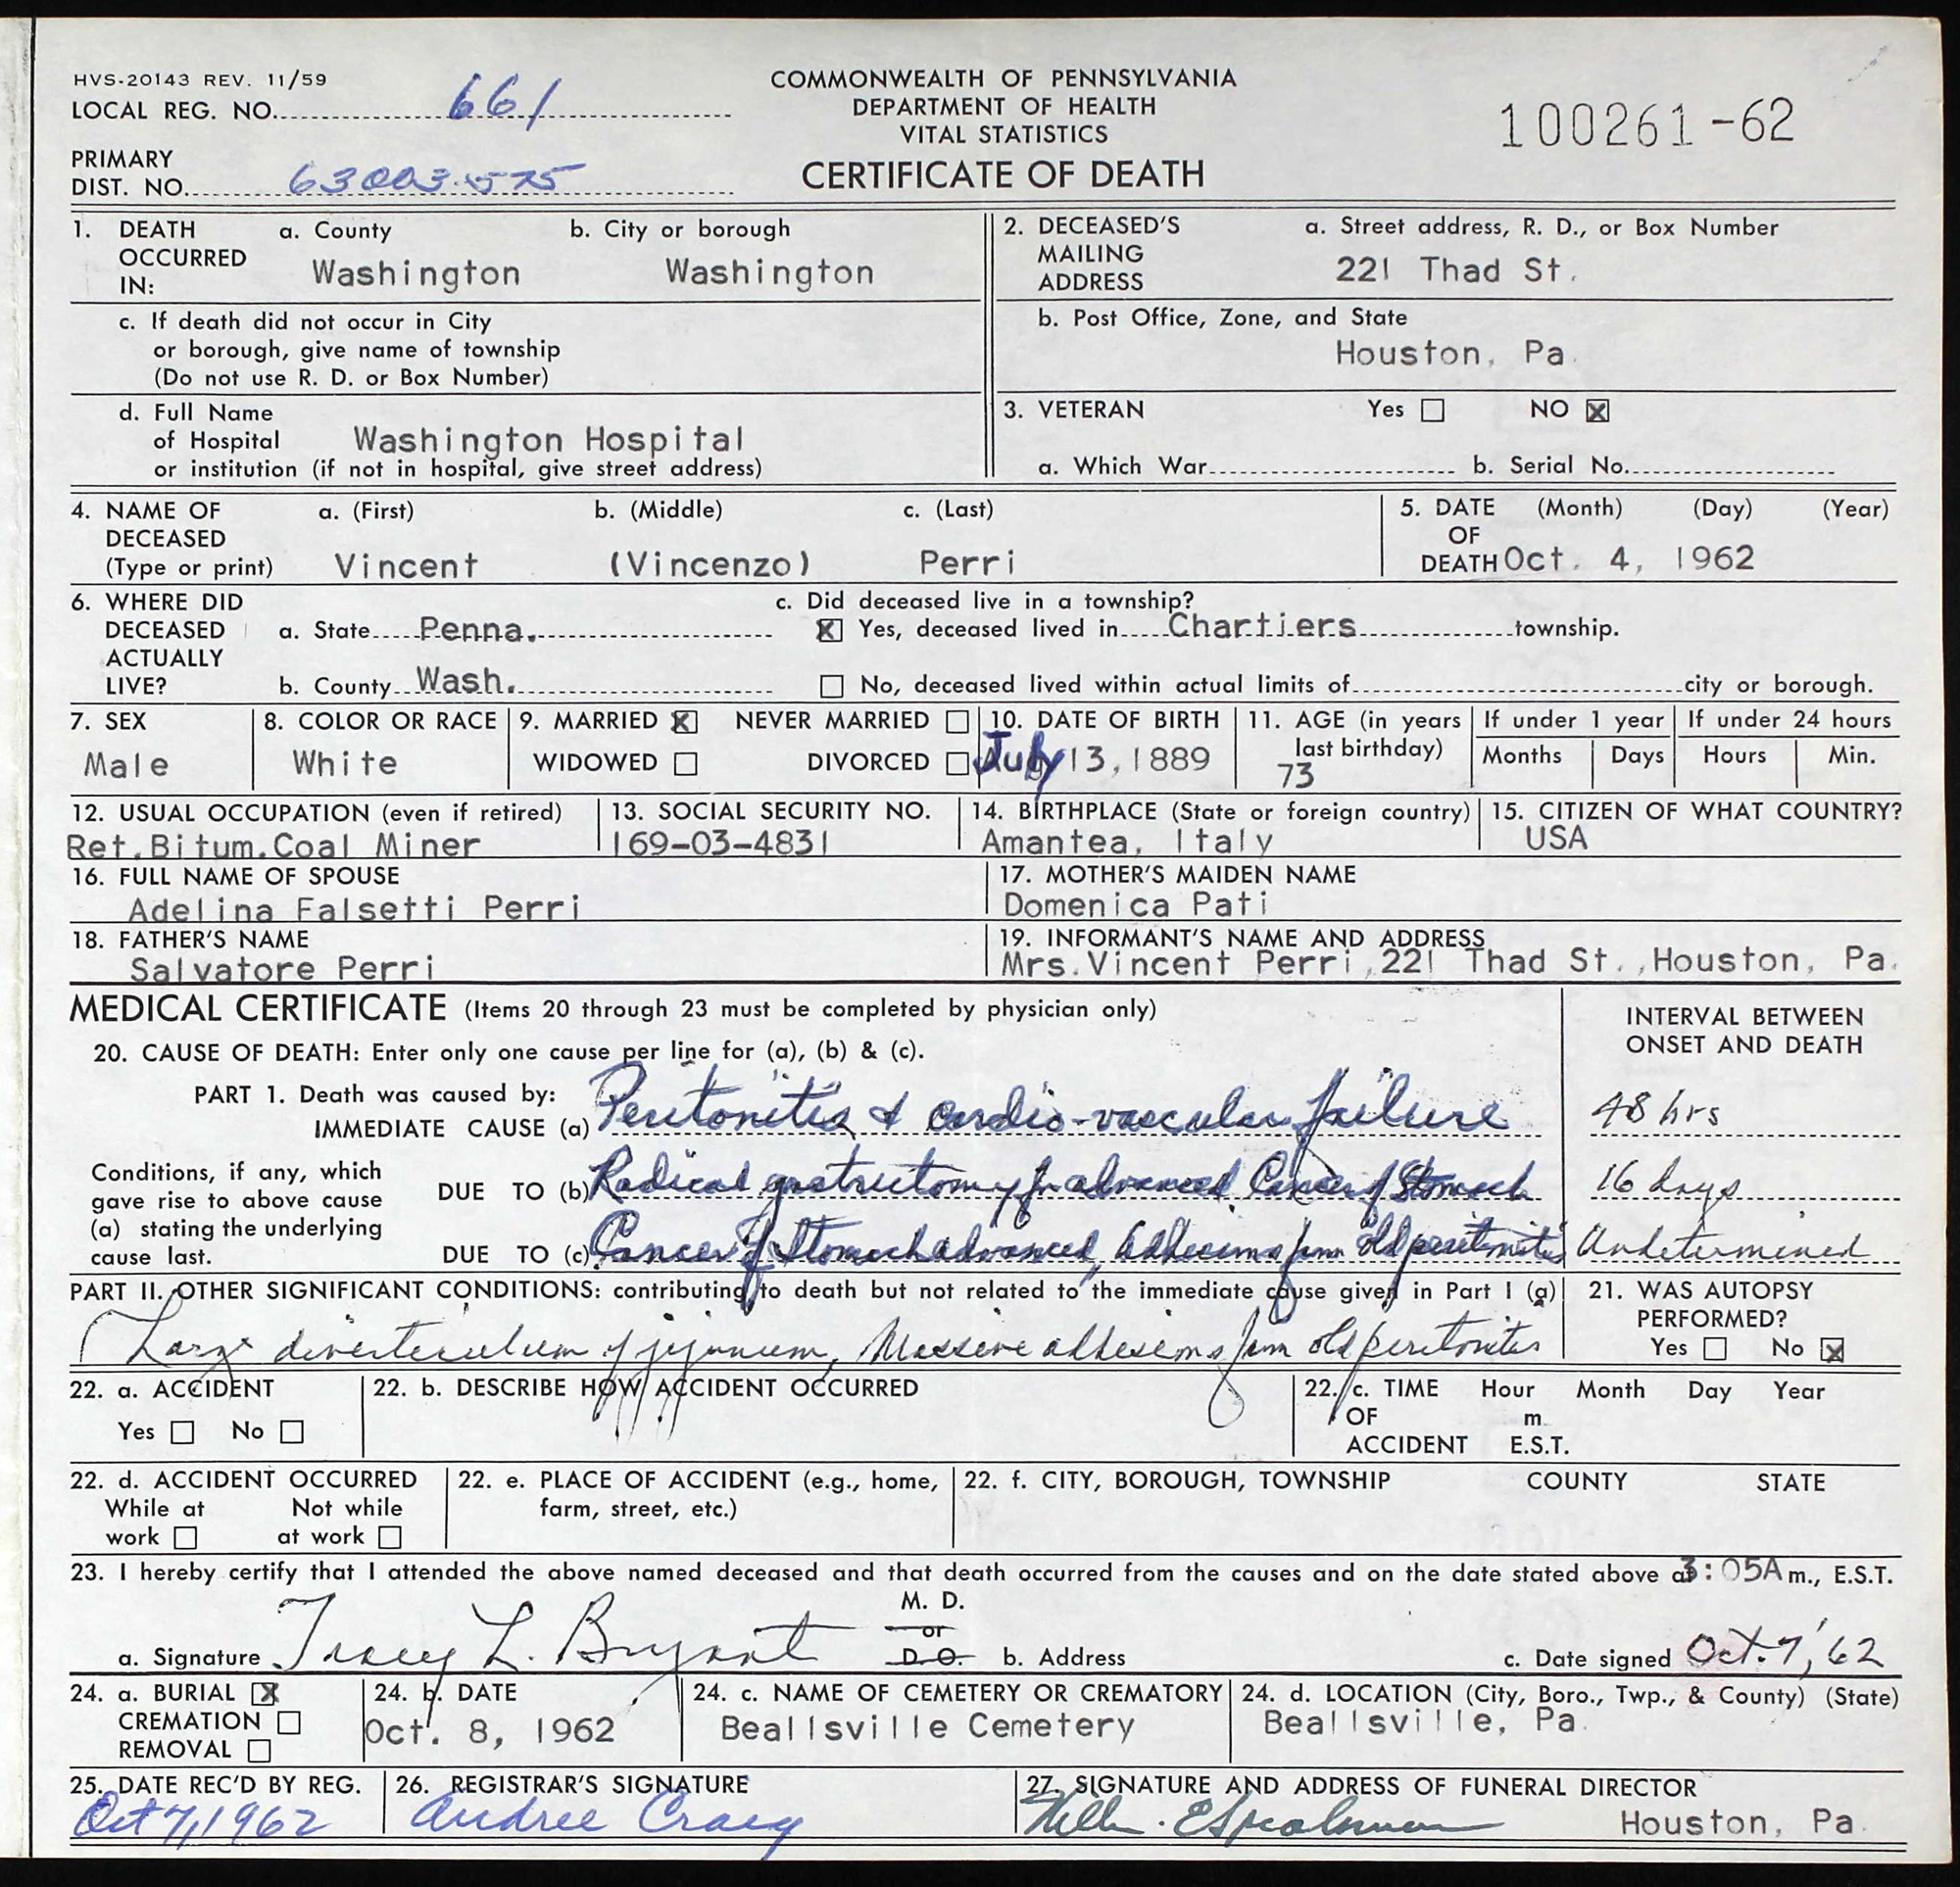 HVS-20143 REV. 11/59
LOCAL REG. NO. 661
COMMONWEALTH OF PENNSYLVANIA
DEPARTMENT OF HEALTH
VITAL STATISTICS
CERTIFICATE OF DEATH
100261-62
PRIMARY
DIST. NO.
1. DEATH OCCURRED IN: a. County Washington b. City or borough Washington
c. If death did not occur in City
or borough, give name of township
(Do not use R. D. or Box Number)
d. Full Name
of Hospital Washington Hospital
or institution (if not in hospital, give street address)
2. DECEASED'S MAILING ADDRESS a. Street address, R. D., or Box Number
221 Thad St.
b. Post Office, Zone, and State
Houston, Pa.
3. VETERAN Yes ☐ NO ☒
a. Which War b. Serial No.
4. NAME OF DECEASED (Type or print) a. (First) b. (Middle) c. (Last)
Vincent (Vincenzo) Perri
5. DATE OF DEATH (Month) (Day) (Year)
Oct. 4, 1962
6. WHERE DID DECEASED ACTUALLY LIVE?
a. State Penna.
b. County Wash.
c. Did deceased live in a township?
☒ Yes, deceased lived in Chartiers township.
☐ No, deceased lived within actual limits of city or borough.
7. SEX
Male
8. COLOR OR RACE
White
9. MARRIED ☒ NEVER MARRIED ☐
WIDOWED ☐ DIVORCED ☐
10. DATE OF BIRTH
July 13, 1889
11. AGE (in years last birthday)
73
If under 1 year
Months Days
If under 24 hours
Hours Min.
12. USUAL OCCUPATION (even if retired)
Ret.Bitum.Coal Miner
13. SOCIAL SECURITY NO.
169-03-4831
14. BIRTHPLACE (State or foreign country)
Amantea, Italy
15. CITIZEN OF WHAT COUNTRY?
USA
16. FULL NAME OF SPOUSE
Adelina Falsetti Perri
17. MOTHER'S MAIDEN NAME
Domenica Pati
18. FATHER'S NAME
Salvatore Perri
19. INFORMANT'S NAME AND ADDRESS
Mrs.Vincent Perri,221 Thad St.,Houston, Pa.
MEDICAL CERTIFICATE (Items 20 through 23 must be completed by physician only)
INTERVAL BETWEEN
ONSET AND DEATH
20. CAUSE OF DEATH: Enter only one cause per line for (a), (b) & (c).
PART 1. Death was caused by:
IMMEDIATE CAUSE (a) Peritonitis & cardio-vascular failure 48 hrs
Conditions, if any, which
gave rise to above cause
(a) stating the underlying
cause last.
DUE TO (b) Radical gastrectomy for advanced Cancer of Stomach 16 days
DUE TO (c) Cancer of Stomach advanced, Adhesions from old peritonitis Undetermined
PART II. OTHER SIGNIFICANT CONDITIONS: contributing to death but not related to the immediate cause given in Part I (a)
Large diverticulum of jejunum, Massive adhesions from old peritonitis
21. WAS AUTOPSY
PERFORMED?
Yes ☐ No ☒
22. a. ACCIDENT
Yes ☐ No ☐
22. b. DESCRIBE HOW ACCIDENT OCCURRED
22. c. TIME OF ACCIDENT Hour Month Day Year
m.
E.S.T.
22. d. ACCIDENT OCCURRED
While at work ☐ Not while at work ☐
22. e. PLACE OF ACCIDENT (e.g., home,
farm, street, etc.)
22. f. CITY, BOROUGH, TOWNSHIP COUNTY STATE
23. I hereby certify that I attended the above named deceased and that death occurred from the causes and on the date stated above at 3:05A m., E.S.T.
a. Signature Tracy L. Bryant M. D. or D. O. b. Address c. Date signed Oct. 7, '62
24. a. BURIAL ☒
CREMATION ☐
REMOVAL ☐
24. b. DATE
Oct. 8, 1962
24. c. NAME OF CEMETERY OR CREMATORY
Beallsville Cemetery
24. d. LOCATION (City, Boro., Twp., & County) (State)
Beallsville, Pa.
25. DATE REC'D BY REG.
Oct 7, 1962
26. REGISTRAR'S SIGNATURE
Audree Craig
27. SIGNATURE AND ADDRESS OF FUNERAL DIRECTOR
Houston, Pa.